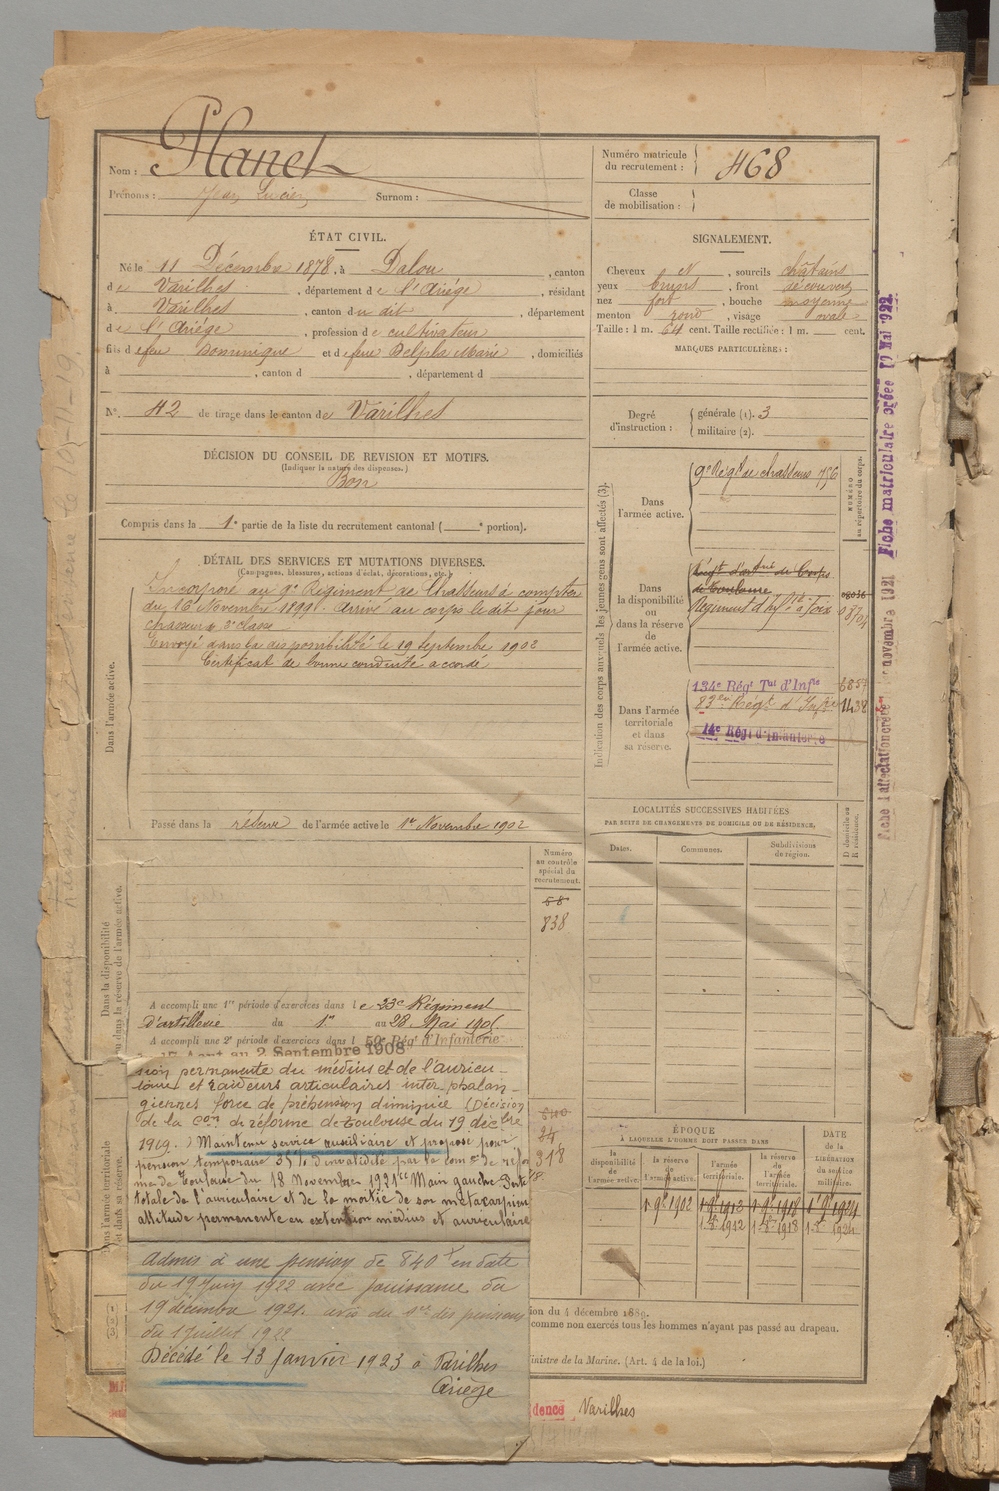 Nom : Planel
Prénoms : Jean Lucien Surnom :
Numéro matricule du recrutement : 468
Classe de mobilisation :
ÉTAT CIVIL.
Né le 11 Décembre 1878, à Dalou, canton
de Varilhes, département de l'Ariège, résidant
à Varilhes, canton du dit, département
de l'Ariège, profession de cultivateur
fils de feu Dominique et de feue Delpla Marie, domiciliés
à , canton d , département d
N° 42 de tirage dans le canton de Varilhes
SIGNALEMENT.
Cheveux et, sourcils châtains
yeux bruns, front découvert
nez fort, bouche moyenne
menton rond, visage ovale
Taille : 1 m. 64 cent. Taille rectifiée : 1 m. cent.
MARQUES PARTICULIÈRES :
Degré d'instruction : générale (1). 3
militaire (2).
DÉCISION DU CONSEIL DE REVISION ET MOTIFS.
(Indiquer la nature des dispenses.)
Bon
Compris dans la 1e partie de la liste du recrutement cantonal ( e portion).
DÉTAIL DES SERVICES ET MUTATIONS DIVERSES.
(Campagnes, blessures, actions d'éclat, décorations, etc.)
Dans l'armée active.
Incorporé au 9e Régiment de Chasseurs à compter
du 16 Novembre 1899. Arrivé au corps le dit jour
chasseur de 2e classe
Envoyé dans la disponibilité le 19 Septembre 1902
Certificat de bonne conduite accordé
Passé dans la réserve de l'armée active le 1er Novembre 1902
Indication des corps auxquels les jeunes gens sont affectés (3).
NUMÉRO au répertoire du corps.
Dans l'armée active.
9e Régt de chasseurs 756
Dans la disponibilité ou dans la réserve de l'armée active.
Régt d'artrie de Corps
de Toulouse 08036
Régiment d'Infrie à Foix 08704
Dans l'armée territoriale et dans sa réserve.
134e Régt Tal d'Infie 6857
83e Régt d'Infrie 1438
14e Régt d'Infanterie
LOCALITÉS SUCCESSIVES HABITÉES
PAR SUITE DE CHANGEMENTS DE DOMICILE OU DE RÉSIDENCE.
Dates. Communes. Subdivisions de région. D domicile ou R résidence.
Dans la disponibilité ou dans la réserve de l'armée active.
Numéro au contrôle spécial du recrutement.
58
838
A accompli une 1re période d'exercices dans le 23e Régiment
d'artillerie du 1er au 28 Mai 1905
A accompli une 2e période d'exercices dans l 59e Régt d'Infanterie
17 Août au 2 Septembre 1908
sion permanente du médius et de l'auricu-
laire et raideurs articulaires inter phalan-
giennes force de préhension diminuée (Décision
de la Con de réforme de Toulouse du 19 décbre
1919.) Maintenu service auxiliaire et proposé pour
pension temporaire 35% d'invalidité par la comon de réfor
me de Toulouse du 18 Novembre 1921 Main gauche Perte
totale de l'auriculaire et de la moitié de son métacarpien
attitude permanente en extension médius et auriculaire
Admis à une pension de 840f en date
du 19 Juin 1922 avec jouissance du
19 décembre 1921. avis du des pensions
du 1 Juillet 1922
Décédé le 13 Janvier 1923 à Varilhes
Ariège
Dans l'armée territoriale et dans sa réserve.
24
318
ÉPOQUE
À LAQUELLE L'HOMME DOIT PASSER DANS
la disponibilité de l'armée active. la réserve de l'armée active. l'armée territoriale. la réserve de l'armée territoriale.
DATE de la LIBÉRATION du service militaire.
1 9e 1902 1 9e 1912 1 9e 1918 1 9e 1924
1 8e 1912 1 8e 1918 1 8e 1924
ion du 4 décembre 1889.
comme non exercés tous les hommes n'ayant pas passé au drapeau.
inistre de la Marine. (Art. 4 de la loi.)
dence Varilhes
Fiche matriculaire créée 19 Mai 1922
Fiche d'affectation créée novembre 1921